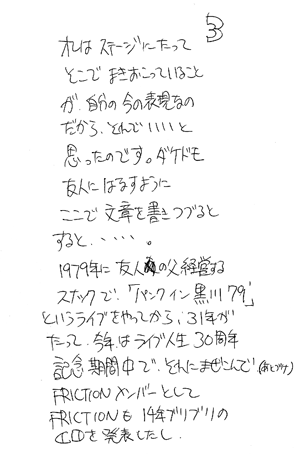 3
オレは ステージにたって
そこで まきおこっていること
が、自分の今の表現なの
だから、それでいいと
思ったのです。ダケドモ
友人に はなすように
ここで 文章を書きつづると
すると、・・・・・。
1979年に 友人の父経営する
スナックで、「パンクイン黒川79」
というライブをやってから、31年が
たって、今年はライブ人生30周年
記念期間中で、それにまぜこんで(あとヅケ)
FRICTIONメンバーとして
FRICTIONも 14年ブリブリの
CDを発表したし、